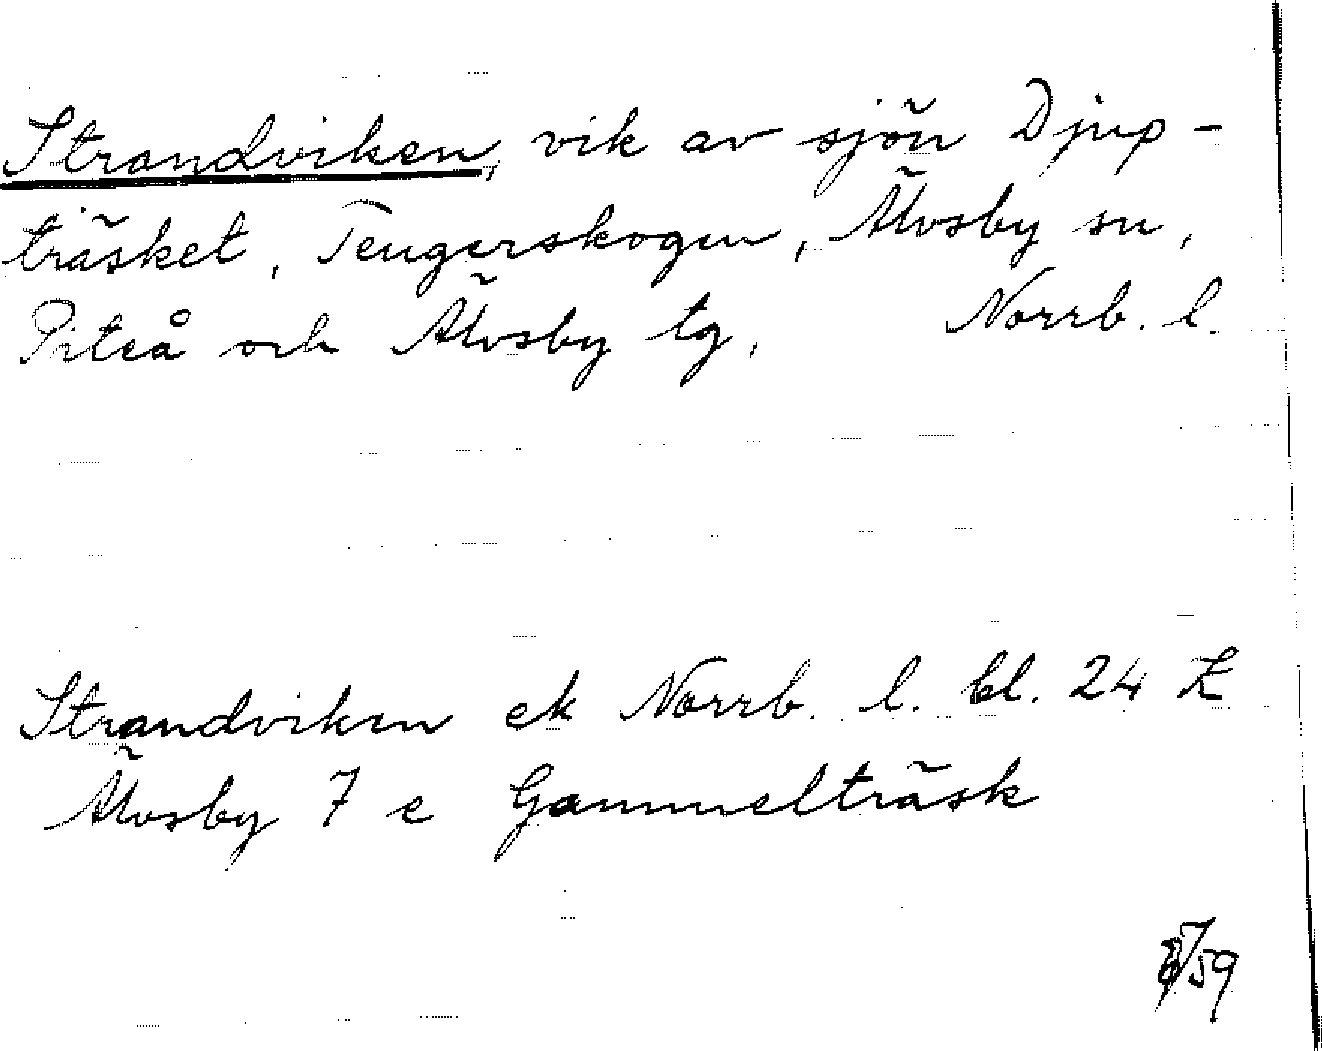 Strandviken, vik av sjön Djup-
träsket, Tengerskogen, Älvsby sn,
Piteå och Älvsby tg, Norrb. l.
Strandviken ek Norrb. l. bl. 24 Z
Älvsby 7 e Gammelträsk